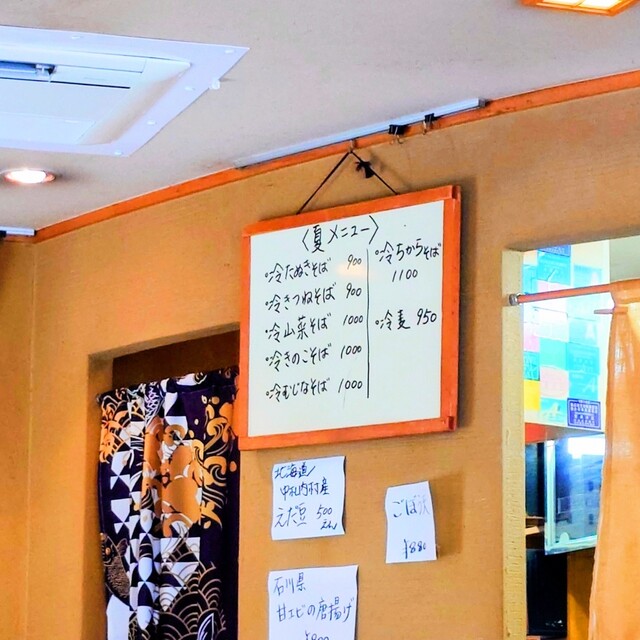 〈夏メニュー〉
・冷たぬきそば 900
・冷きつねそば 900
・冷山菜そば 1000
・冷きのこそば 1000
・冷むじなそば 1000
・冷ちからそば
1100
・冷麦 950
北海道
中札内村産
えだ豆 500
えん
ごぼ天
¥880
石川県
甘エビの唐揚げ